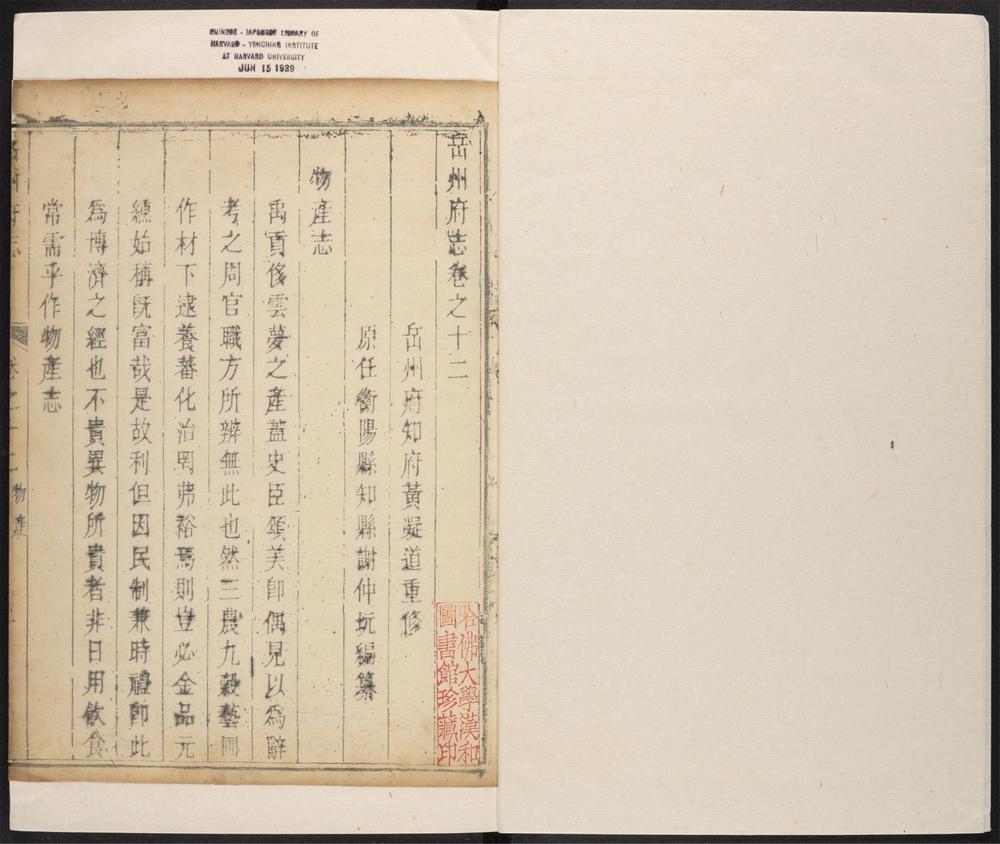 CHINESE - JAPANESE LIBRARY OF
HARVARD - YENCHING INSTITUTE
AT HARVARD UNIVERSITY
JUN 15 1939
岳州府志卷之十二
岳州府知府黃凝道重修
原任衡陽縣知縣謝仲坃編纂
物產志
禹貢侈雲夢之產蓋史臣頌美卽偶見以爲辭
考之周官職方所辨無此也然三農九穀藝圃
作材下逮養蕃化治罔弗裕焉則豈必金品元
纁始稱旣富哉是故利但因民制兼時禮卽此
爲博濟之經也不貴異物所貴者非日用飲食
常需乎作物產志
物產
哈佛大學漢和
圖書館珍藏印